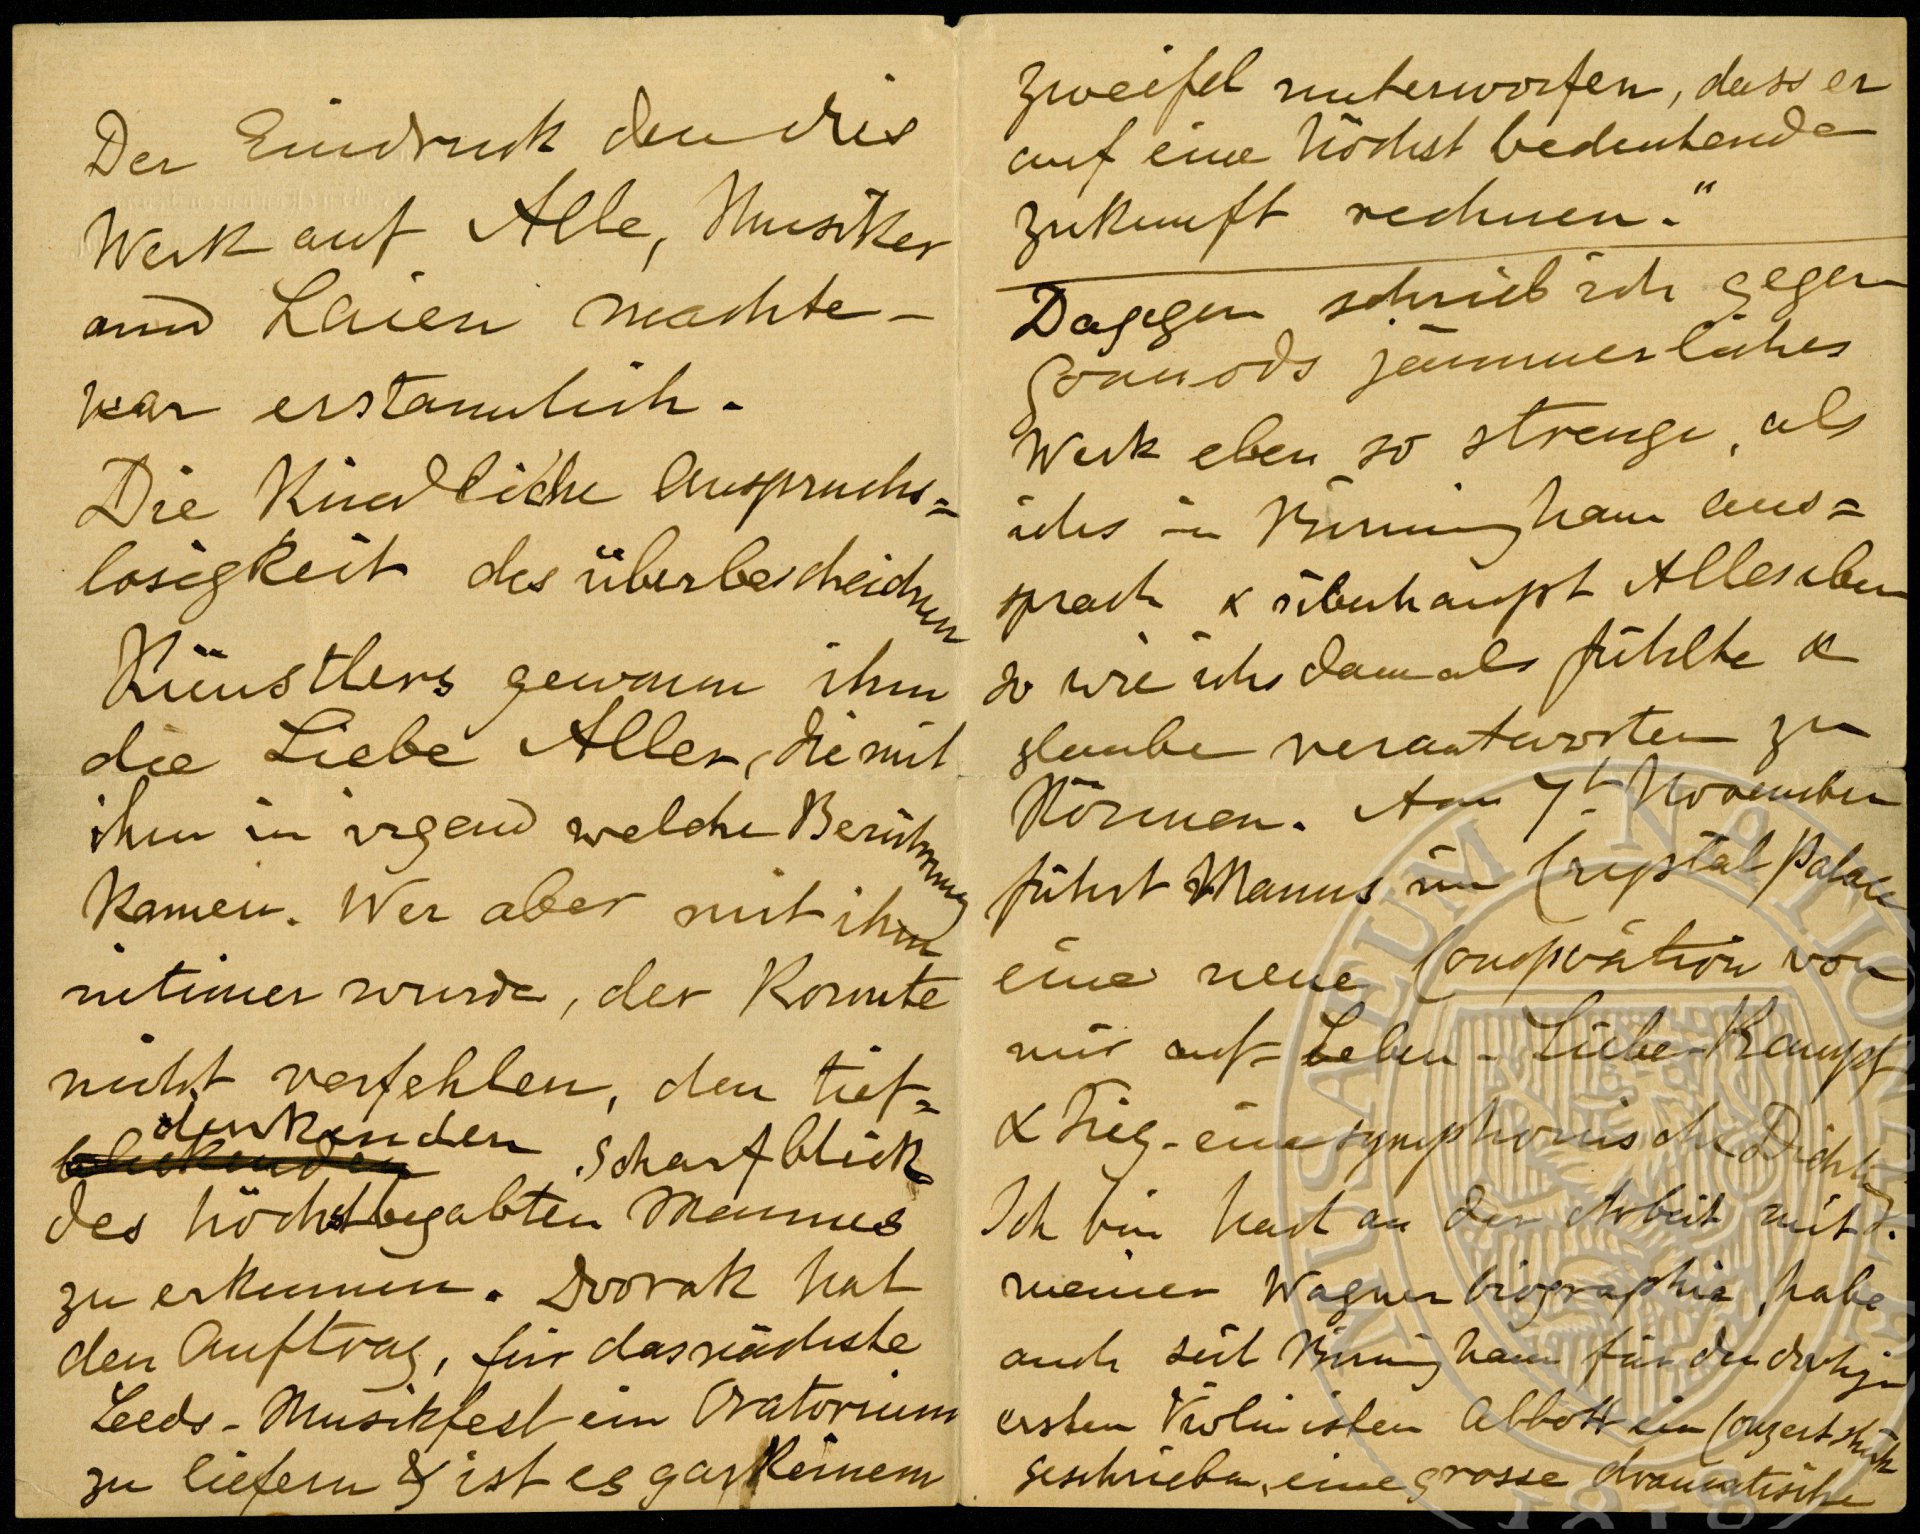 Der Eindruck den dies
Werk auf Alle, Musiker
und Laien machte –
war erstaunlich.
Die Kindliche Anspruchs=
losigkeit des überbescheidnen
Künstlers gewann ihm
die Liebe Aller, die mit
ihm in irgend welche Berührung
Kamen. Wer aber mit ihm
intimer wurde, der Konnte
nicht verfehlen, den tief=
denkenden
blickenden Scharfblick
des höchstbegabten Mannes
zu erkennen. Dvorak hat
den Auftrag, für das nächste
Leeds-Musikfest ein Oratorium
zu liefern & ist es gar Keinem
Zweifel unterworfen, dass er
auf eine höchst bedeutende
Zukunft rechnen."
Dagegen schrieb ich gegen
Gounods jämmerliches
Werk eben so strenge, als
ichs in Birmingham aus=
sprach & überhaupt Alles eben
so wie ichs damals fühlte &
glaube verantworten zu
Können. Am 7t. November
führt Manns im Crystal Palace
eine neue Composition von
mir auf = Leben – Liebe – Kampf
& Sieg – eine symphonische Dichtung.
Ich bin hart an der Arbeit mit
meiner Wagnerbiographie, habe
auch seit Birmingham für den dortigen
ersten Violinisten Abbott ein Conzertstück
geschrieben, eine grosse dramatische
MUSAEUM NATIONALE
1818